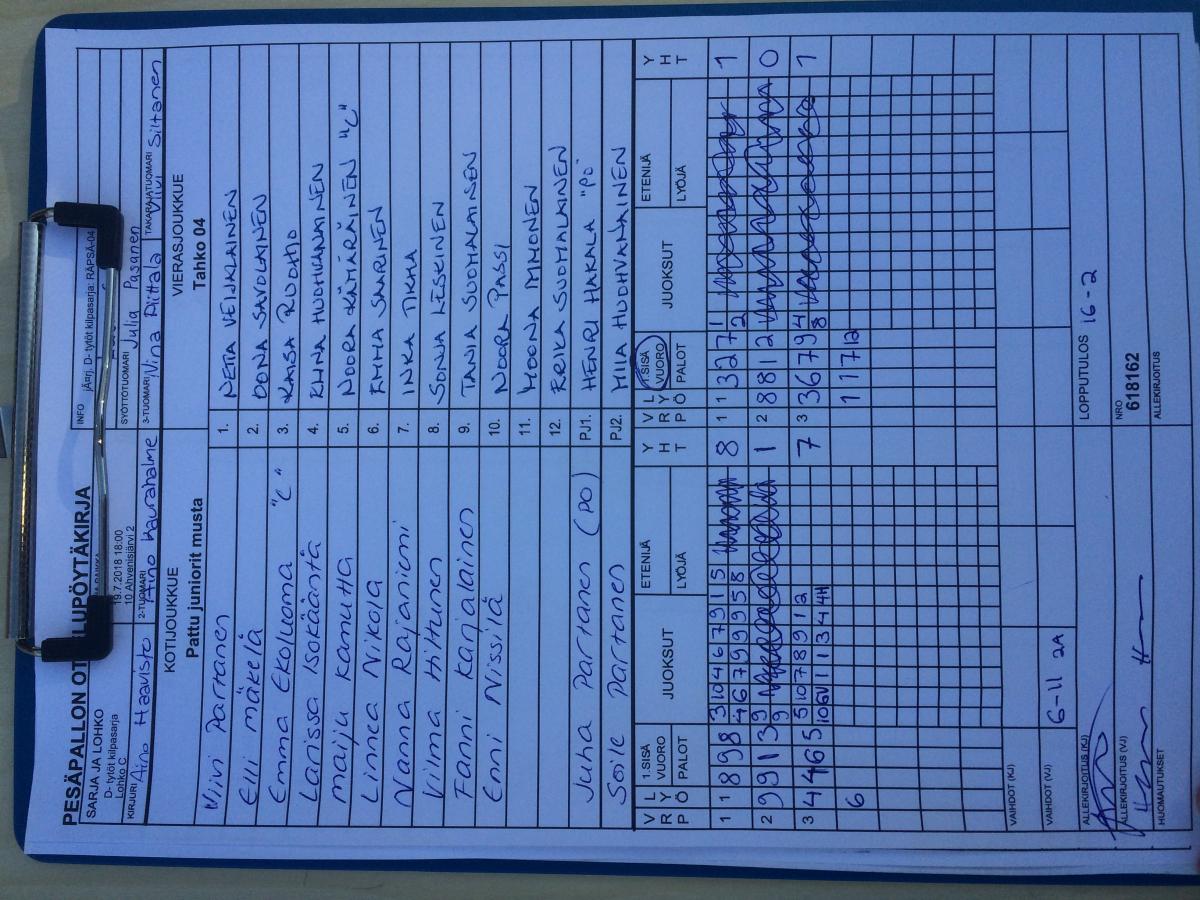 PESÄPALLON OT LUPÖYTÄKIRJA
SARJA JA LOHKO
D- tytöt kilpasarja
Lohko C
19.7.2018 18:00
10 Ahvenisjärvi 2
INFO jÄ¤rj. D- tytöt kilpasarja: RÄPSÄ-04
SYÖTTÖTUOMARI Julia Pasanen
KIRJURI Aino Haavisto
2-TUOMARI Aino Kaurahalme
3-TUOMARI Nina Piittala
TAKARAJATUOMARI Viivi Siltanen
KOTIJOUKKUE
Pattu juniorit musta
VIERASJOUKKUE
Tahko 04
Viivi Partanen 1. NETTA VEIJALAINEN
Elli mäkelä 2. OONA SAVOLAINEN
Emma Ekoluoma "C" 3. KAISA RUOHO
Larissa Isokääntä 4. EHNA HUOHVANAINEN
maiju Kamutta 5. NOORA KÄMÄRÄINEN "C"
Linnea Nikola 6. EMMA SAARINEN
Nanna Rajaniemi 7. INKA TIKKA
Vilma Hiltunen 8. SONJA LESKINEN
Fanni Karjalainen 9. TANJA SUOMALAINEN
Enni Nissilä 10. NOORA PASSI
11. MOONA IMMONEN
12. ERIKA SUOMALAINEN
Juha Partanen (PO) PJ1. HENRI HAKALA "PÖ"
Soile Partanen PJ2. MIIA HUOHVANAINEN
V R P L Y Ö 1.SISÄ VUORO PALOT JUOKSUT ETENIJÄ LYÖJÄ Y H T V R P L Y Ö 1.SISÄ VUORO PALOT JUOKSUT ETENIJÄ LYÖJÄ Y H T
1 1 8 9 8 3 10 4 6 7 9 1 5 8 1 1 3 2 7 1 1
4 6 7 9 9 9 5 8 2
2 9 9 1 3 9 1 2 8 8 1 2 0
9
3 4 4 6 5 5 10 7 8 9 1 2 7 3 3 6 7 9 4 1
10 6V 1 1 3 4 4H 8
6 1 1 7 12
VAIHDOT (KJ)
VAIHDOT (VJ) 6-11 2A
ALLEKIRJOITUS (KJ)
LOPPUTULOS 16-2
ALLEKIRJOITUS (VJ)
NRO
618162
HUOMAUTUKSET
ALLEKIRJOITUS